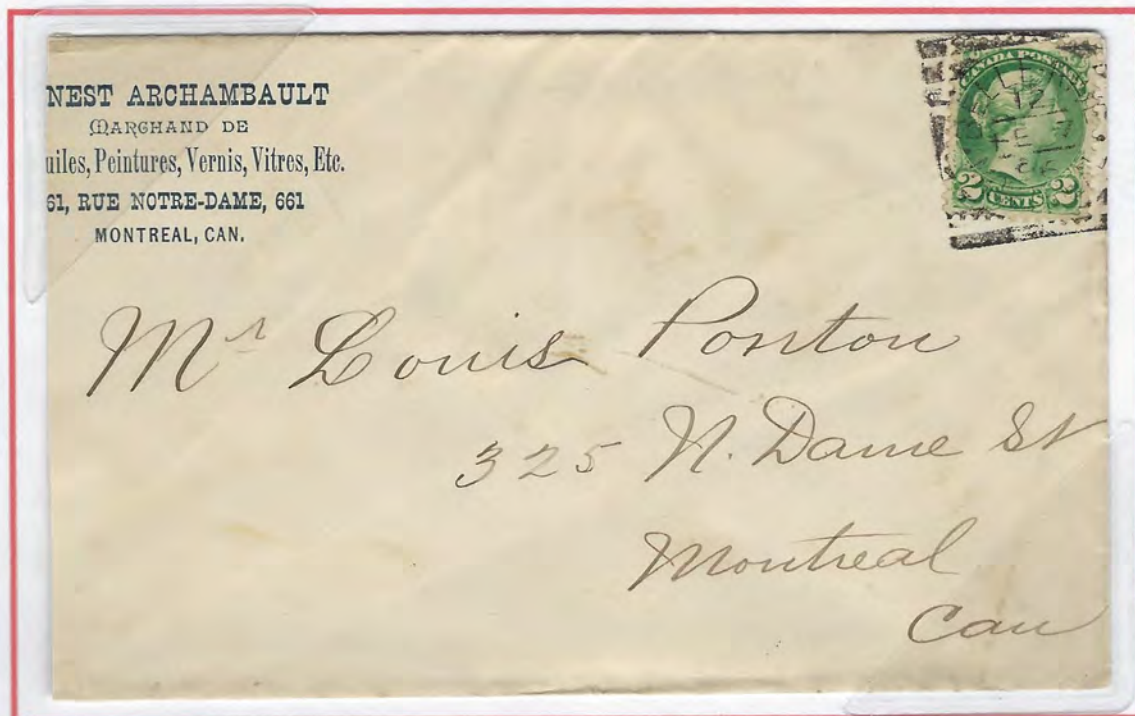 NEST ARCHAMBAULT
MARCHAND DE
uiles, Peintures, Vernis, Vitres, Etc.
61, RUE NOTRE-DAME, 661
MONTREAL, CAN.
CANADA POSTAGE
2 CENTS 2
Mr Louis Ponton
325 N. Dame St
Montreal
Can